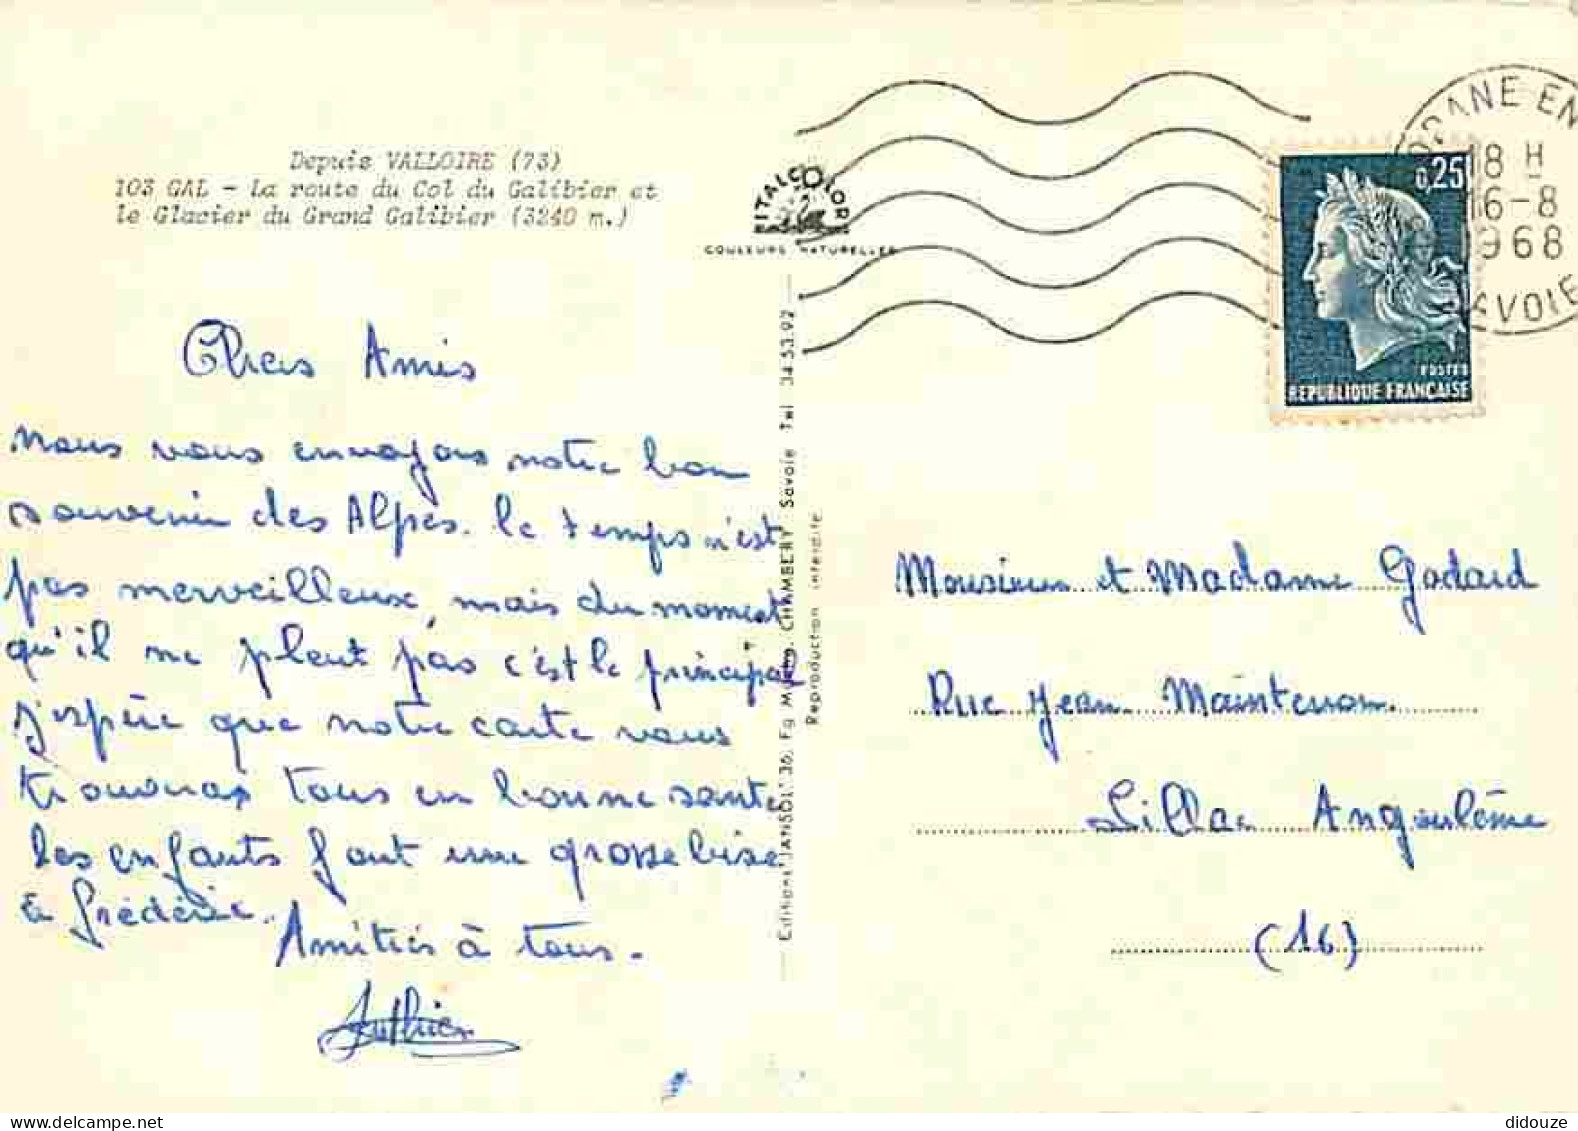 Depuis VALLOIRE (73)
103 GAL - La route du Col du Galibier et
le Glacier du Grand Galibier (3240 m.)
ITALCOLOR
COULEURS NATURELLES
Chers Amis
Nous vous envoyons notre bon
souvenir des Alpes. le temps n'est
pas merveilleux, mais du moment
qu'il ne pleut pas c'est le principal
J'espère que notre carte vous
trouveras tous en bonne santé
les enfants font une grosse bise
à Frédéric.
Amitiés à tous.
Editions JANSOL, 36, Fg CHAMBERY Savoie Tel 34.53.92
Reproduction interdite
ANE EN
18 H
16-8
1968
SAVOIE
0,25
POSTES
REPUBLIQUE FRANÇAISE
Monsieur et Madame Godard
Rue Jean Maintenon.
Lillac Angoulême
(16)
didouze